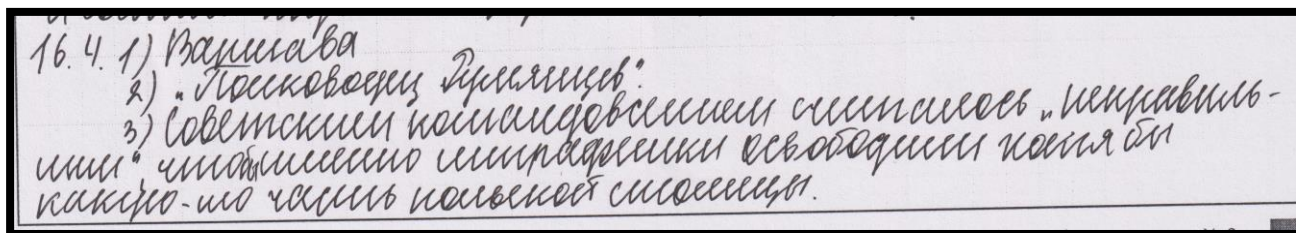 16.4. 1) Варшава
2) „Полководец Румянцев".
3) Советским командованием считалось „неправиль-
ным", чтобы именно штрафники освободили хотя бы
какую-то часть польской столицы.